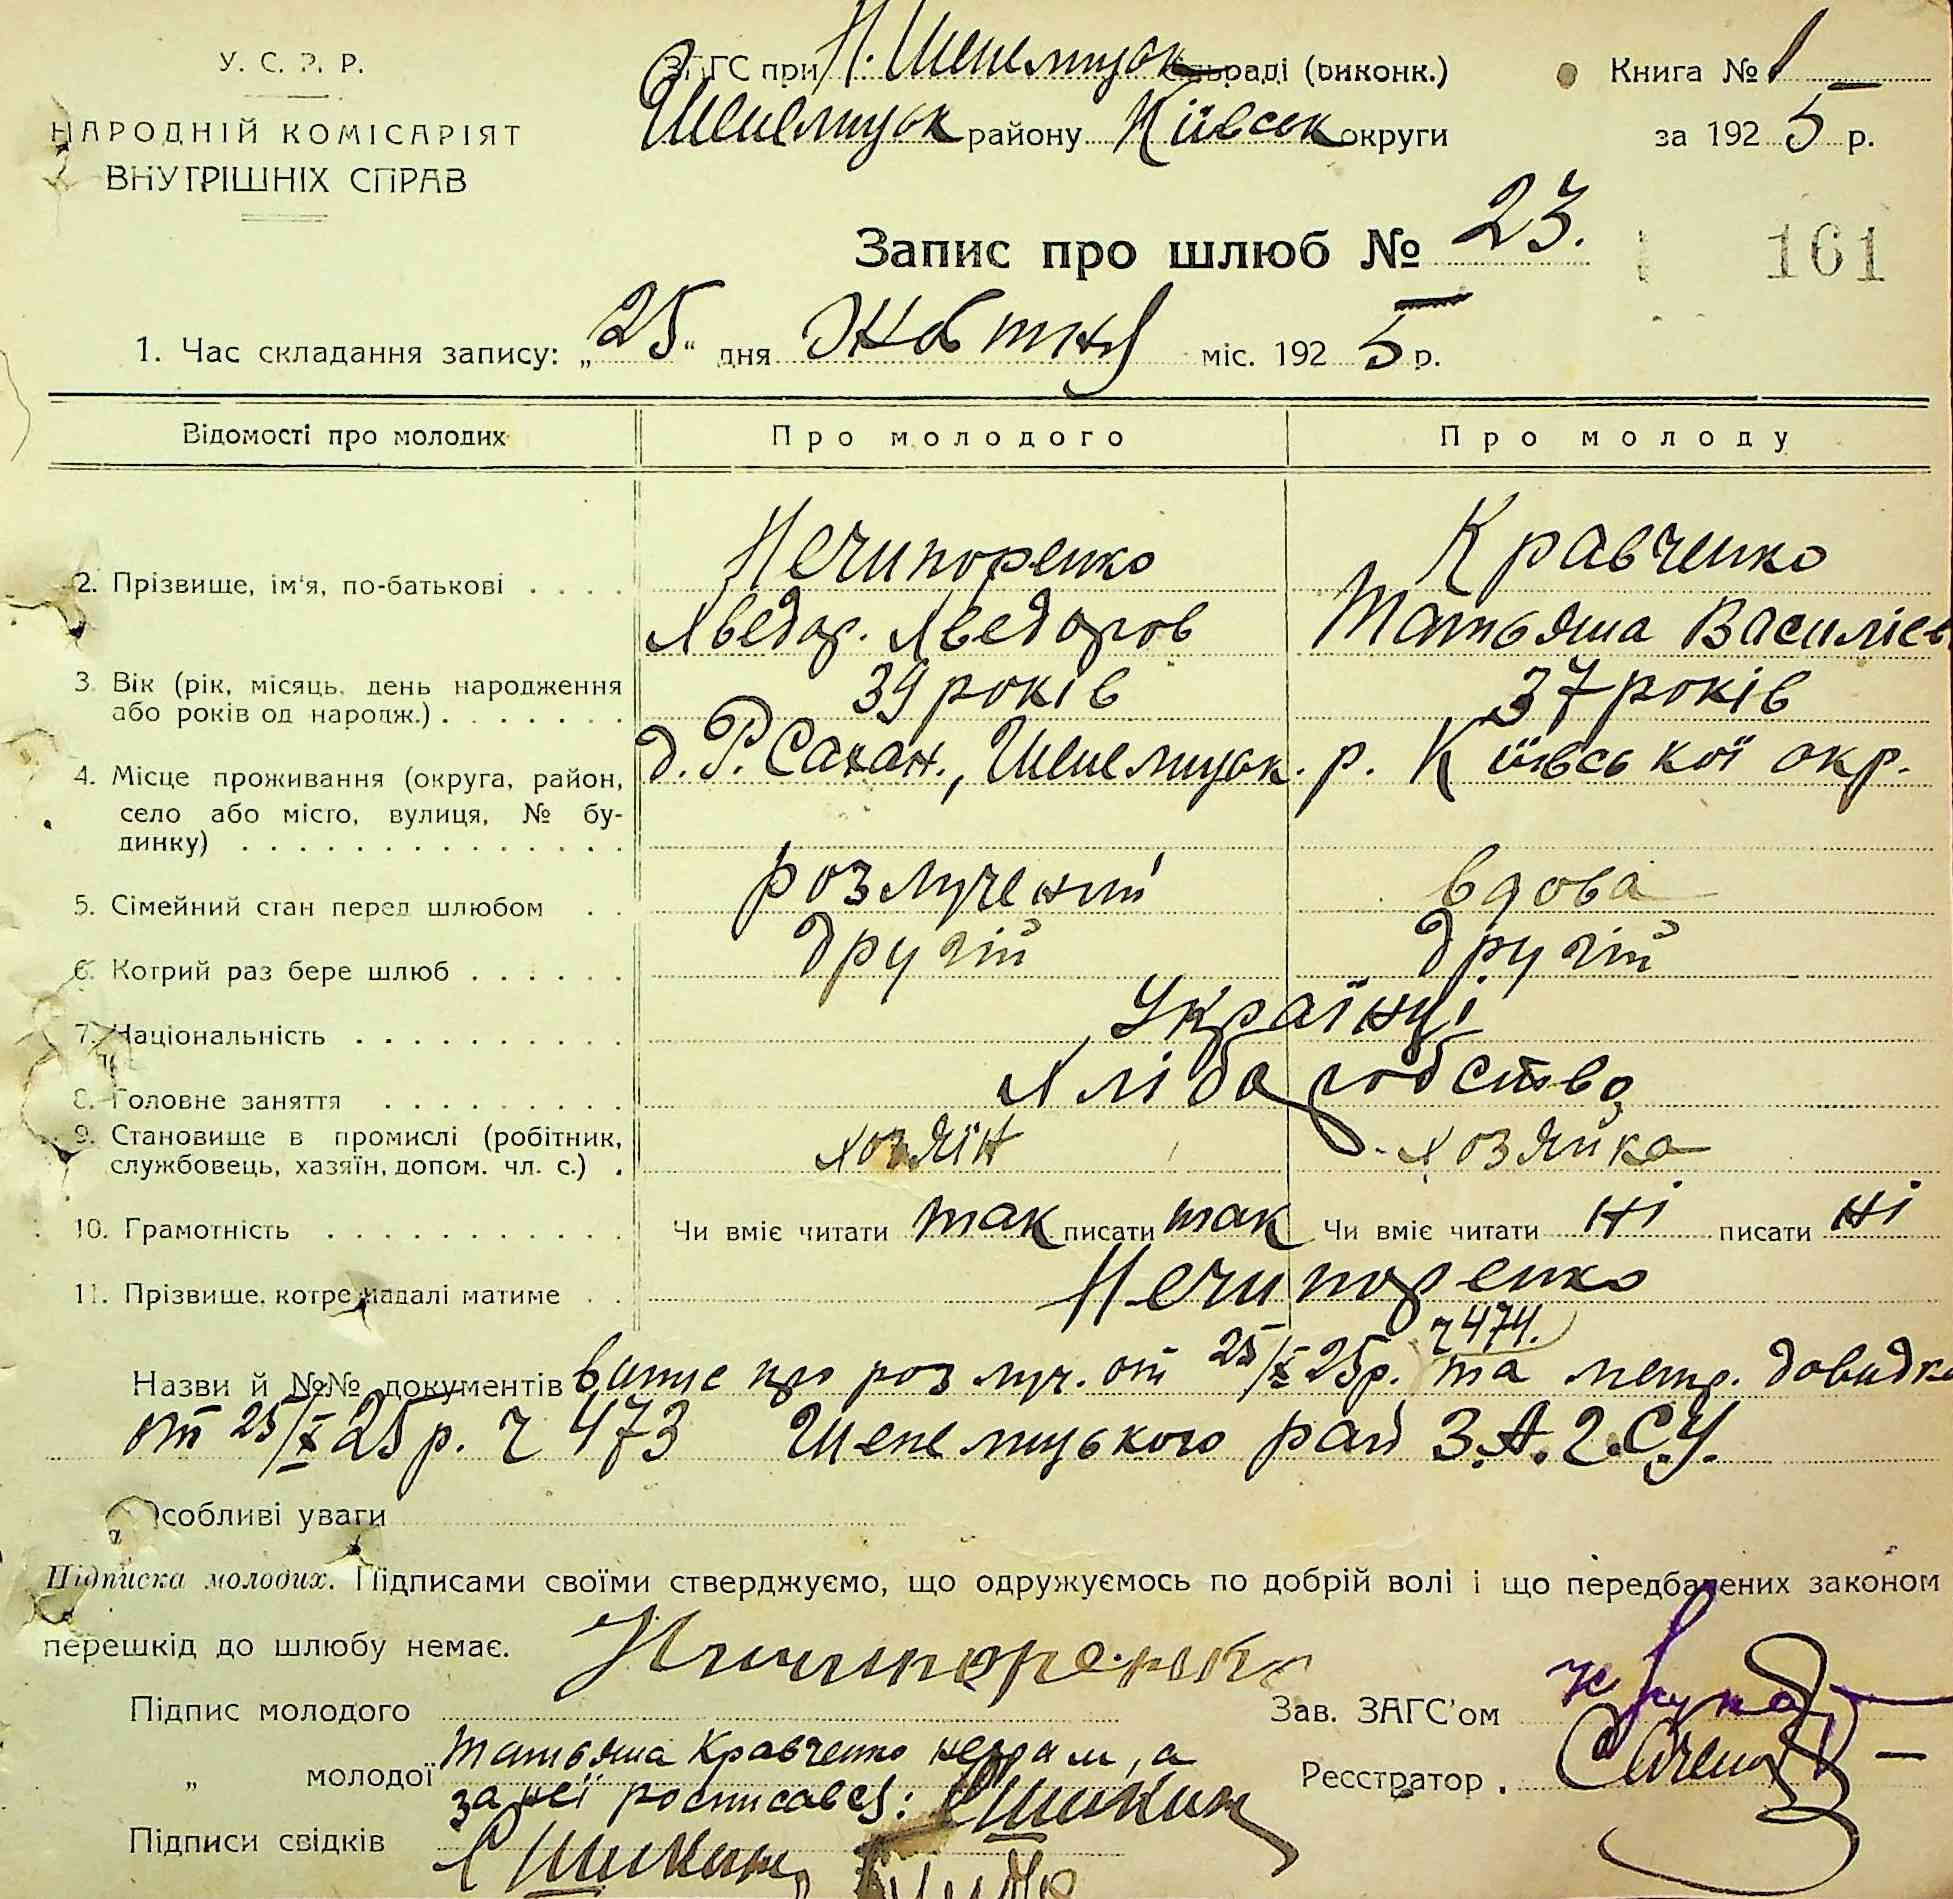 У. С. Р. Р.
НАРОДНІЙ КОМІСАРІЯТ
ВНУТРІШНІХ СПРАВ
ЗАГС при Н. Шепелицьк сільраді (виконк.)
Шепелицьк району Київськ округи
Книга № 1
за 1925 р.
Запис про шлюб № 23.
161
1. Час складання запису: „25“ дня Жовтня міс. 1925 р.
Відомості про молодих Про молодого Про молоду
2. Прізвище, ім'я, по-батькові . . . . Нечипоренко Кравченко
Хведор. Хведоров Татьяна Василієв
3. Вік (рік, місяць, день народження або років од народж.) . . . . . . . 39 років 37 років
4. Місце проживання (округа, район, село або місто, вулиця, № будинку) . . . . . . . . . . . . . . д. Р. Сахан., Шепелицьк. р. Київської окр.
5. Сімейний стан перед шлюбом . . розлучений вдова
6. Котрий раз бере шлюб . . . . . . другій другій
7. Національність . . . . . . . . . . Українці
8. Головне заняття . . . . . . . . . Хліборобство
9. Становище в промислі (робітник, службовець, хазяїн, допом. чл. с.) . хозяїн хозяйка
10. Грамотність . . . . . . . . . . . Чи вміє читати так писати так Чи вміє читати ні писати ні
11. Прізвище, котре надалі матиме . . Нечипоренко
ч 474.
Назви й №№ документів випис про розлуч. от 25/X 25р. та метр. довидка
от 25/X 25 р. ч 473 Шепелицького рай З.А.Г.С.У.
Особливі уваги
Підписка молодих. Підписами своїми стверджуємо, що одружуємось по добрій волі і що передбачених законом
перешкід до шлюбу немає.
Підпис молодого Ничипоренко
Зав. ЗАГС'ом
„ молодої Татьяна Кравченко неграм, а
за неї росписався: Шишкин
Реєстратор .
Підписи свідків Шишкин